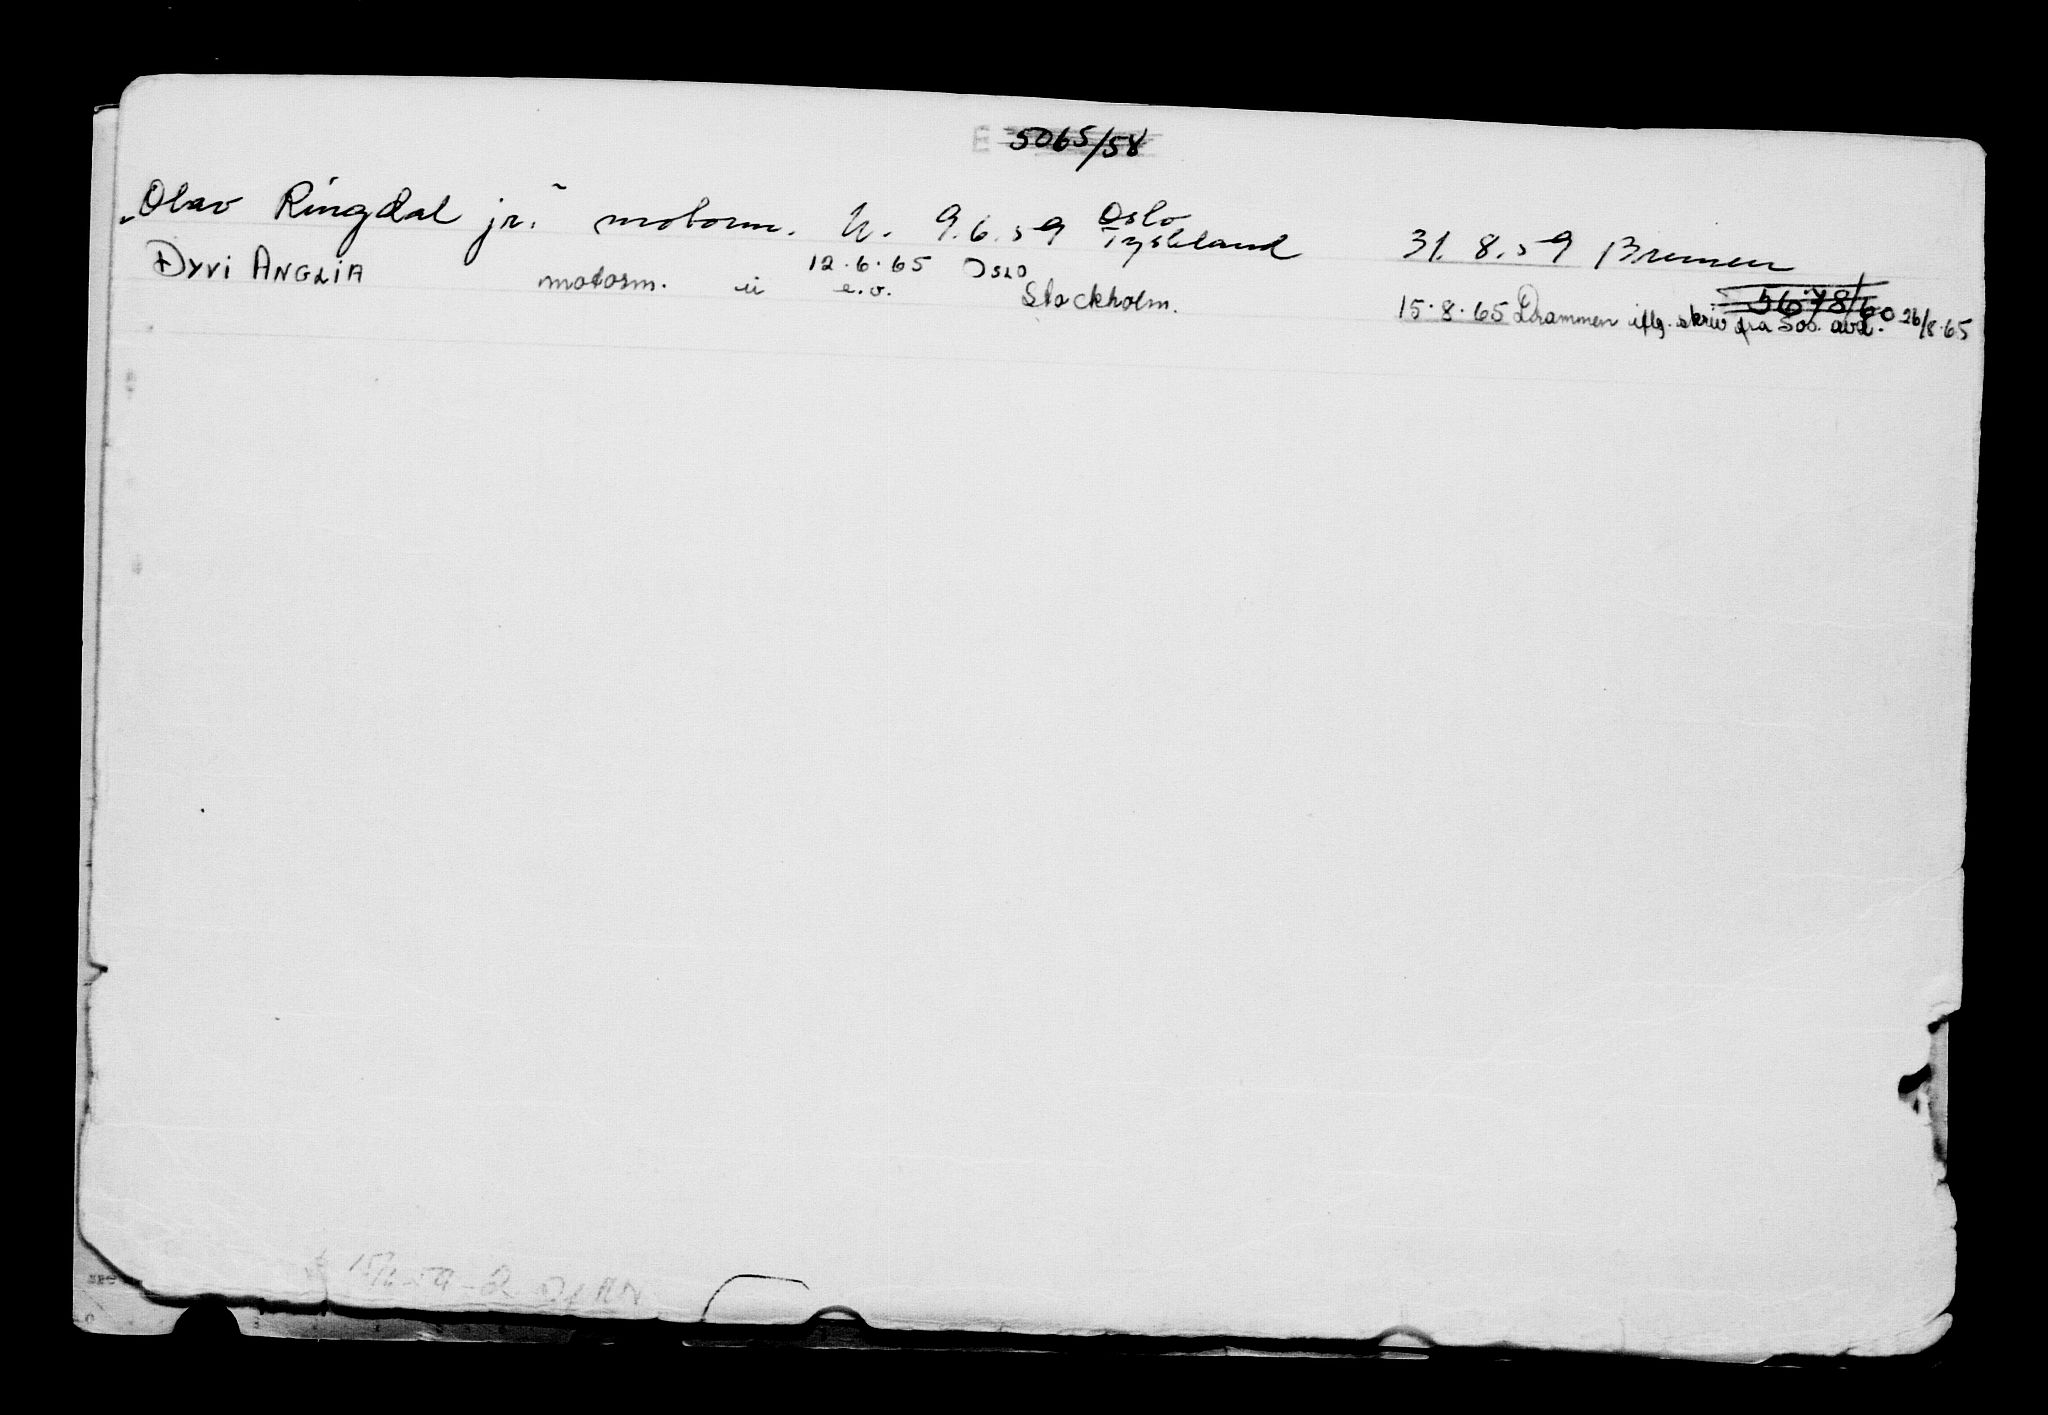 E 5065/58
"Olav Ringdal jr." motorm. u. 9.6.59 Oslo Tyskland 31.8.59 Bremen
DYVI ANGLIA motorm. u 12.6.65 e.o. Oslo Stockholm. 15.8.65 Drammen iflg. skriv fra Soo. avd. 26/8.65
5678/60